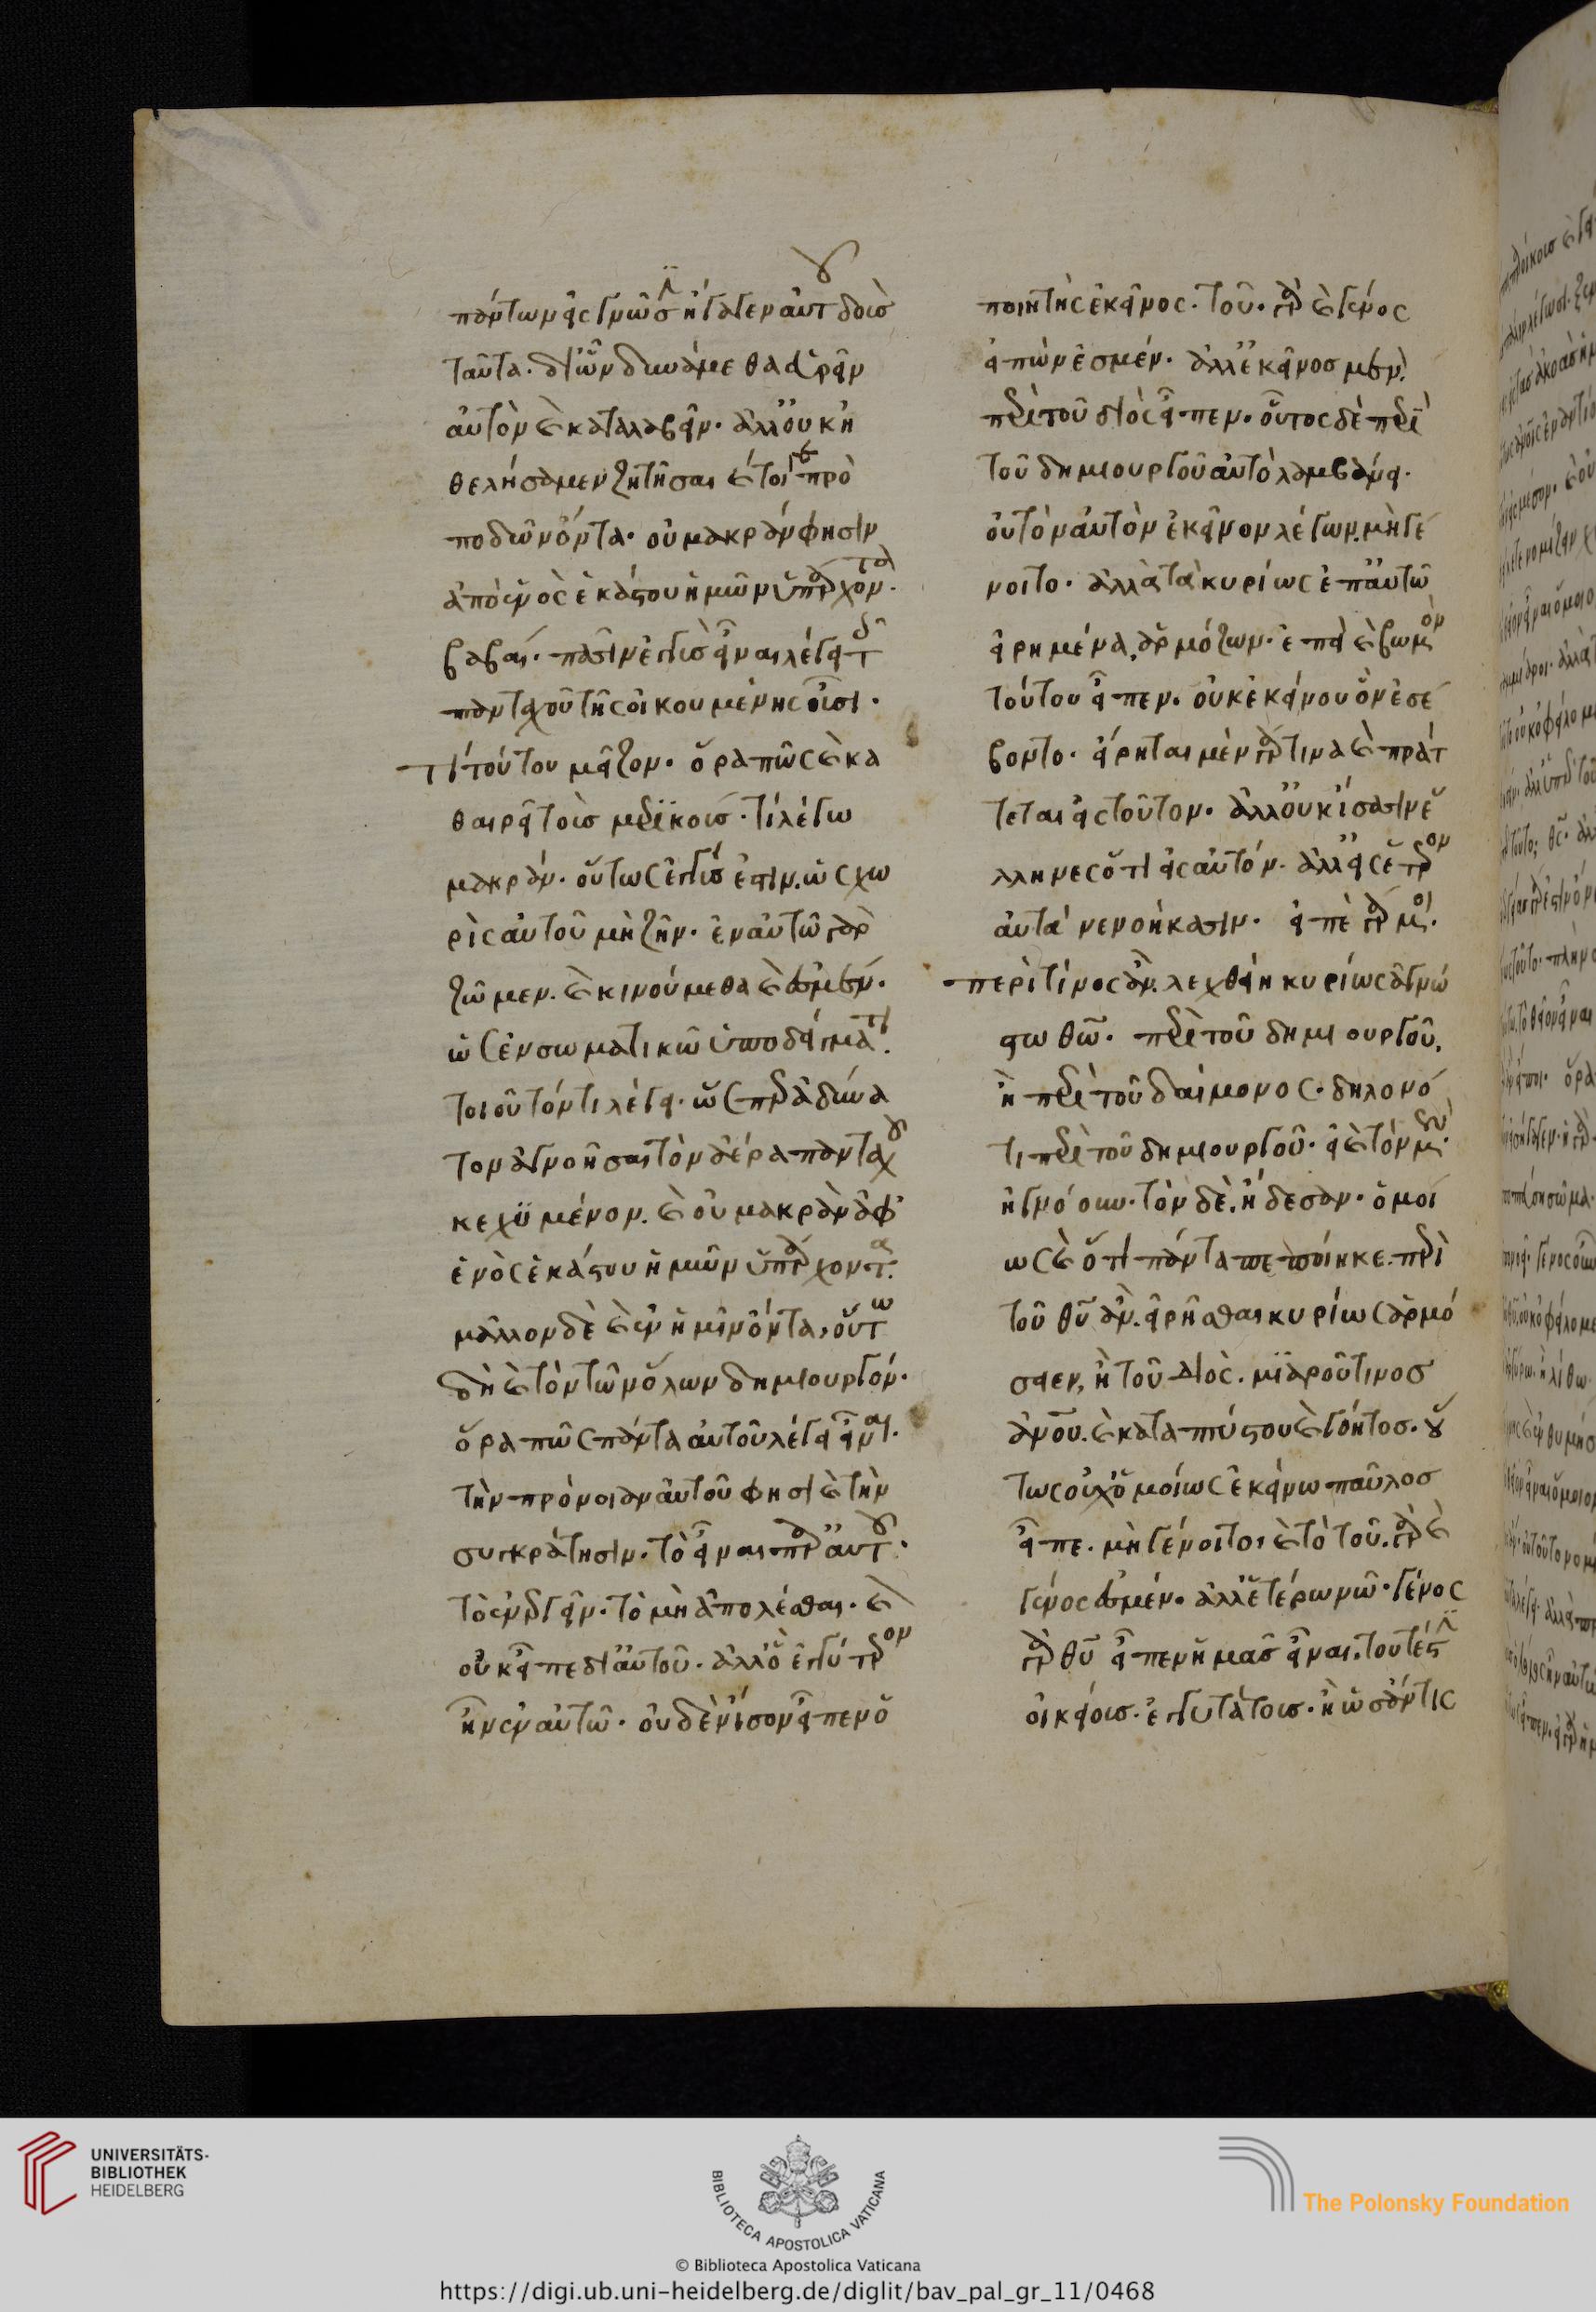 πάντων εἰς γνῶσιν ἤγαγεν αὐτοῦ δοὺσ
ταῦτα. δι' ὧν δυνάμεθα εὑρεῖν
αὐτὸν καὶ καταλαβεῖν. ἀλλ' οὐκ ἠ
θελήσαμεν ζητῆσαι καίτοι γε πρὸ
ποδῶν ὄντα. οὐ μακράν φησιν
ἀπὸ ἑνὸς ἑκάστου ἡμῶν ὑπάρχοντα.
βαβαί. πᾶσιν ἐγγὺσ εἶναι λέγει τοῖς
πανταχοῦ τῆς οἰκουμένης οὖσι.
τί τούτου μεῖζον. ὅρα πῶς καὶ κα
θαιρεῖ τοὺσ μερικοὺσ. τί λέγω
μακράν. οὕτως ἐγγύσ ἐστιν. ὡς χω
ρὶς αὐτοῦ μὴ ζῆν. ἐν αὐτῶ γὰρ
ζῶμεν. καὶ κινούμεθα καὶ ἐσμέν.
ὡς ἐν σωματικῶ ὑποδείγματι.
τοιοῦτόν τι λέγει. ὥσπερ ἀδύνα
τον ἀγνοῆσαι τὸν ἀέρα πανταχοῦ
κεχυμένον. καὶ οὐ μακρὰν ἀφ'
ἑνὸς ἑκάστου ἡμῶν ὑπάρχοντα.
μᾶλλον δὲ καὶ ἐν ἡμῖν ὄντα, οὕτω
δὴ καὶ τὸν τῶν ὅλων δημιουργόν.
ὅρα πῶς πάντα αὐτοῦ λέγει εἶναι.
τὴν πρόνοιαν αὐτοῦ φησὶ καὶ τὴν
συγκράτησιν. τὸ εἶναι παρ' αὐτοῦ.
τὸ ἐνεργεῖν. τὸ μὴ ἀπολέσθαι. καὶ
οὐκ εἶπε δι' αὐτοῦ. ἀλλ' ὃ ἐγγύτερον
ἦν ἐν αὐτῶ. οὐδὲν ἴσον εἶπεν ὁ
ποιητὴς ἐκεῖνος. τοῦ. γὰρ καὶ γένος
εἰπὼν ἐσμέν. ἀλλ' ἐκεῖνοσ μὲν.
περὶ τοῦ διὸς εἶπεν. οὗτος δὲ περὶ
τοῦ δημιουργοῦ αὐτὸ λαμβάνει.
οὐ τὸν αὐτὸν ἐκείνον λέγων. μὴ γέ
νοιτο. ἀλλὰ τὰ κυρίως ἐπ' αὐτῶ
εἰρημένα. ἁρμόζων. ἐπεὶ καὶ βωμὸν
τούτου εἶπεν. οὐκ ἐκείνου ὃν ἐσέ
βοντο. εἴρηται μὲν γάρ τινα καὶ πράτ
τεται εἰς τοῦτον. ἀλλ' οὐκ ἴσασιν ἕ
λληνες ὅτι εἰς αὐτόν. ἀλλ' εἰς ἕτερον
αὐτὰ νενοήκασιν. εἰπὲ γάρ μοι.
περὶ τίνος ἂν. λεχθείη κυρίως ἀγνώ
στω θεῶ. περὶ τοῦ δημιουργοῦ.
ἢ περὶ τοῦ δαίμονος. δηλονό
τι περὶ τοῦ δημιουργοῦ. εἰ καὶ τὸν μὲν.
ἠγνόουν. τὸν δὲ. ἤδεσαν. ὁμοί
ως καὶ ὅτι πάντα πεποίηκε. περὶ
τοῦ θεοῦ ἂν. εἰρῆσθαι κυρίως ἁρμό
σειεν, ἢ τοῦ διὸς. μιαροῦ τινοσ
ἀνθρώπου. καὶ καταπτύστου καὶ γόητοσ. οὕ
τως οὐχ ὁμοίως ἐκείνω παῦλοσ
εἶπε. μὴ γένοιτο. καὶ τὸ τοῦ. γὰρ καὶ
γένος ἐσμέν. ἀλλ' ἑτέρω νῶ. γένος
γὰρ θεοῦ εἶπεν ἡμᾶσ εἶναι. τουτέστιν
οἰκείουσ. ἐγγυτάτουσ. ἢ ὡσ ἄν τις